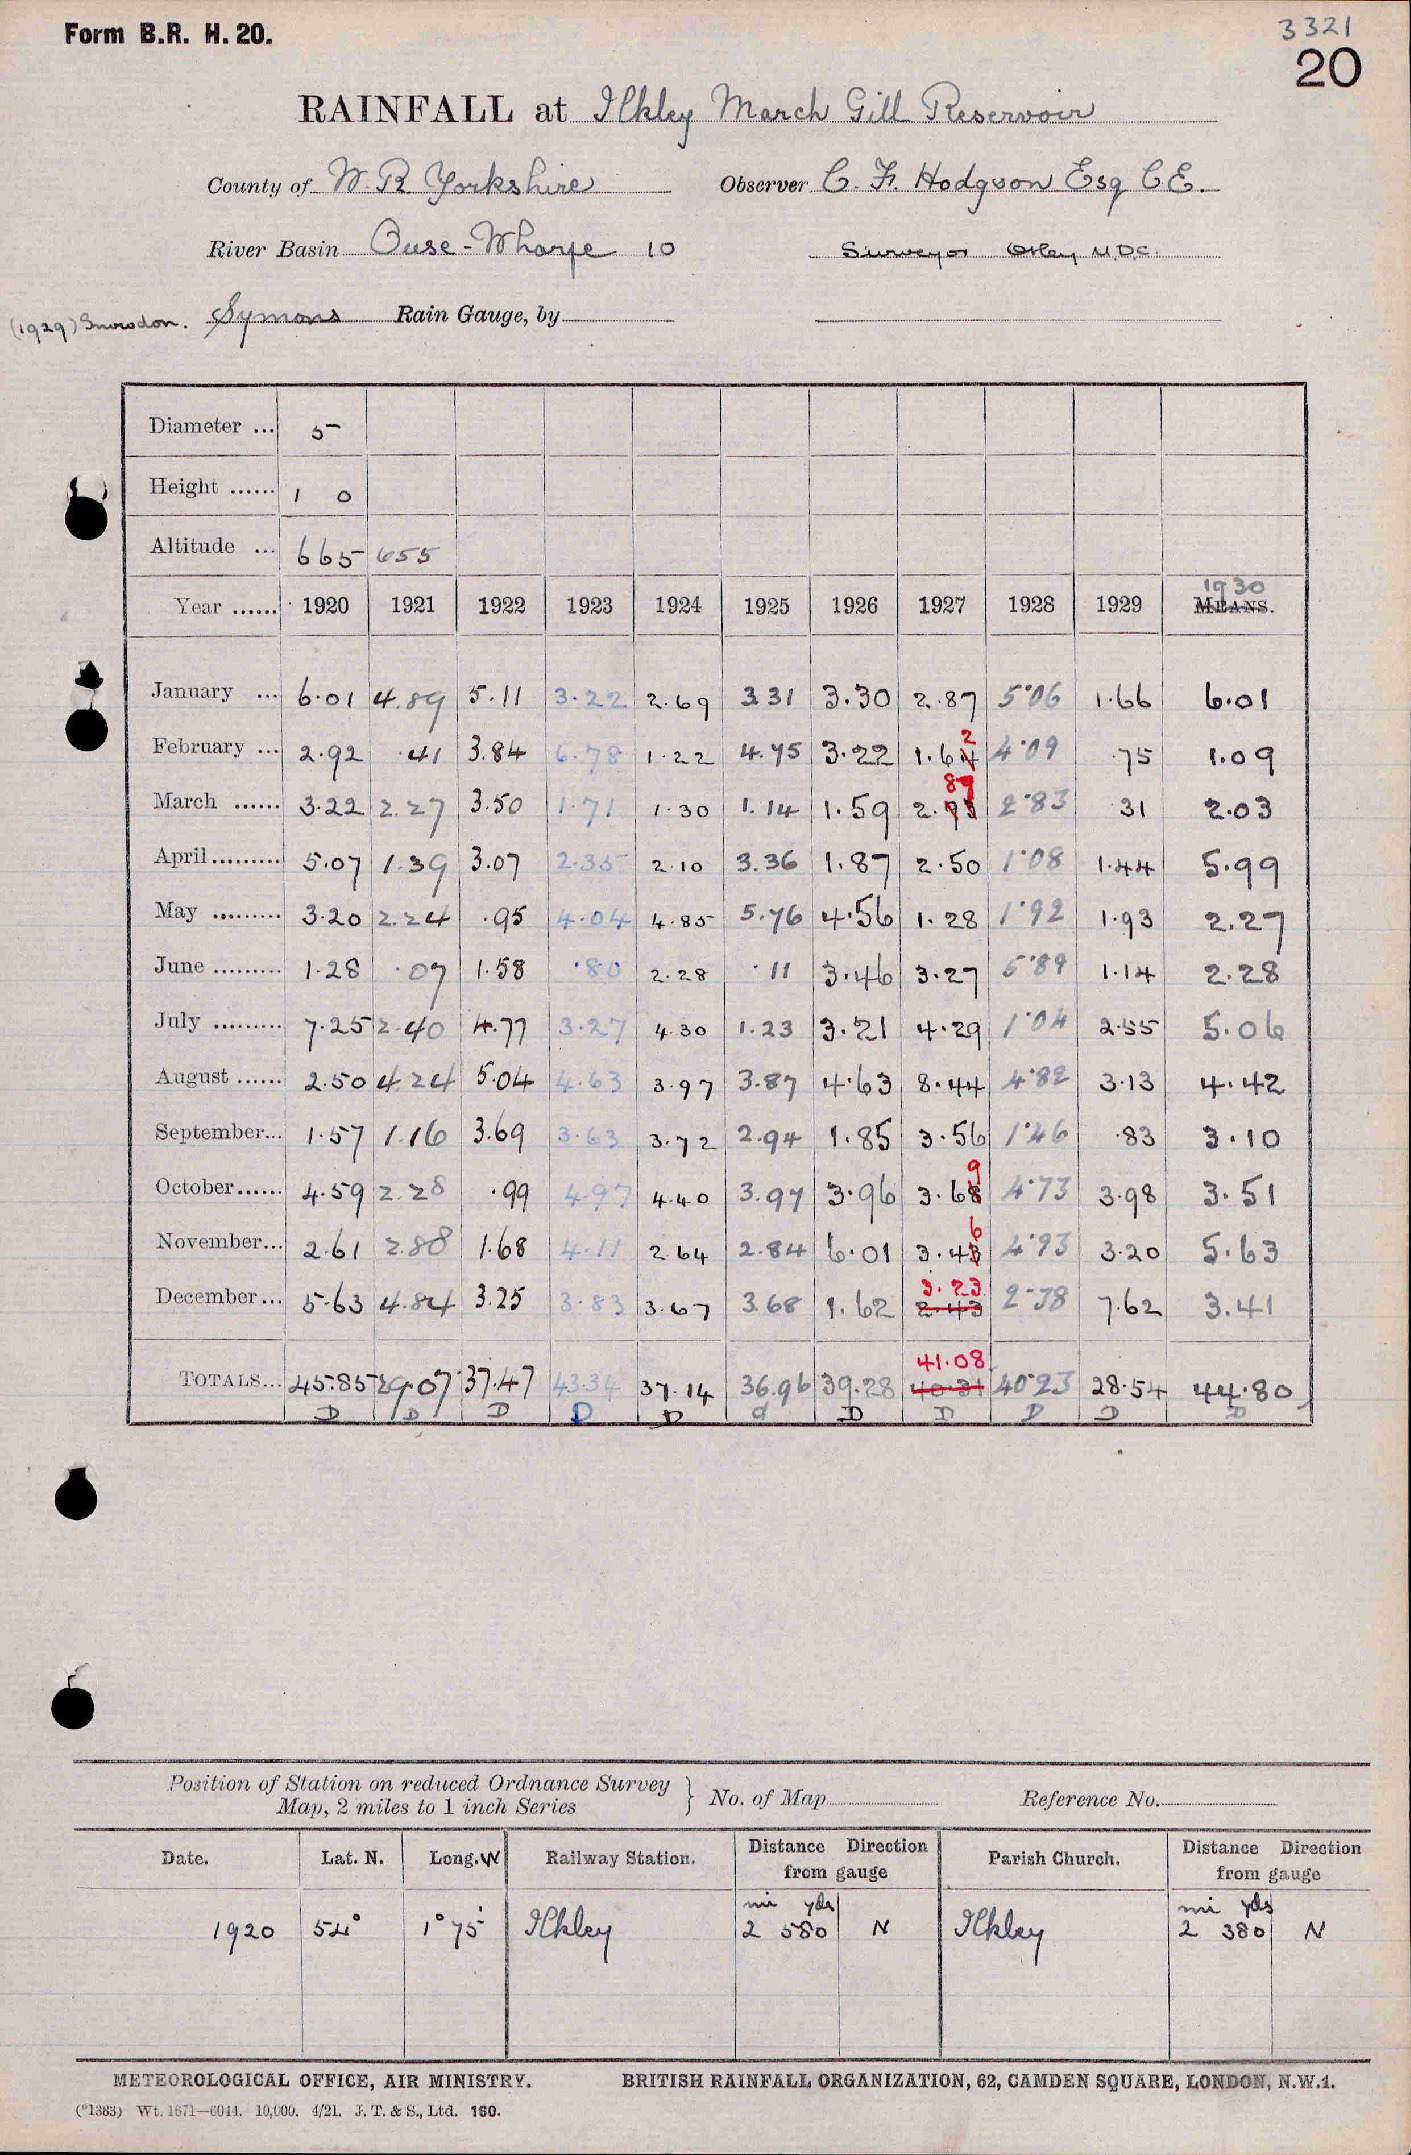 Form B.R. H. 20.
3321
20
RAINFALL at Ilkley March Gill Reservoir
County of W. R. Yorkshire Observer C. F. Hodgson Esq C E.
River Basin Ouse - Wharfe 10 Surveyor Otley U.D.C.
(1929) Snowdon. Symons Rain Gauge, by
Diameter ... 5
Height ...... 1 0
Altitude ... 665 655
1930
Year ...... 1920 1921 1922 1923 1924 1925 1926 1927 1928 1929 MEANS.
January ... 6.01 4.89 5.11 3.22 2.69 3.31 3.30 2.87 5.06 1.66 6.01
2
February ... 2.92 .41 3.84 6.78 1.22 4.75 3.22 1.64 4.09 .75 1.09
89
March ...... 3.22 2.27 3.50 1.71 1.30 1.14 1.59 2.93 2.83 31 2.03
April ......... 5.07 1.39 3.07 2.35 2.10 3.36 1.87 2.50 1.08 1.44 5.99
May ......... 3.20 2.24 .95 4.04 4.85 5.76 4.56 1.28 1.92 1.93 2.27
June ......... 1.28 .07 1.58 .80 2.28 .11 3.46 3.27 5.89 1.14 2.28
July ......... 7.25 2.40 4.77 3.27 4.30 1.23 3.21 4.29 1.04 2.55 5.06
August ...... 2.50 4.24 5.04 4.63 3.97 3.87 4.63 8.44 4.82 3.13 4.42
September... 1.57 1.16 3.69 3.63 3.72 2.94 1.85 3.56 1.46 .83 3.10
9
October...... 4.59 2.28 .99 4.97 4.40 3.97 3.96 3.68 4.73 3.98 3.51
6
November... 2.61 2.88 1.68 4.11 2.64 2.84 6.01 3.43 4.93 3.20 5.63
3.23
December... 5.63 4.84 3.25 3.83 3.67 3.68 1.62 2.43 2.38 7.62 3.41
41.08
TOTALS... 45.85 29.07 37.47 43.34 37.14 36.96 39.28 40.31 40.23 28.54 44.80
D D D D D d D D D D D
Position of Station on reduced Ordnance Survey Map, 2 miles to 1 inch Series } No. of Map Reference No.
Date. Lat. N. Long. W Railway Station. Distance Direction from gauge Parish Church. Distance Direction from gauge
mi yds mi yds
1920 54° 1° 75' Ilkley 2 580 N Ilkley 2 380 N
METEOROLOGICAL OFFICE, AIR MINISTRY. BRITISH RAINFALL ORGANIZATION, 62, CAMDEN SQUARE, LONDON, N.W.1.
(*1383) Wt. 1671—6044. 10,000. 4/21. J. T. & S., Ltd. 160.